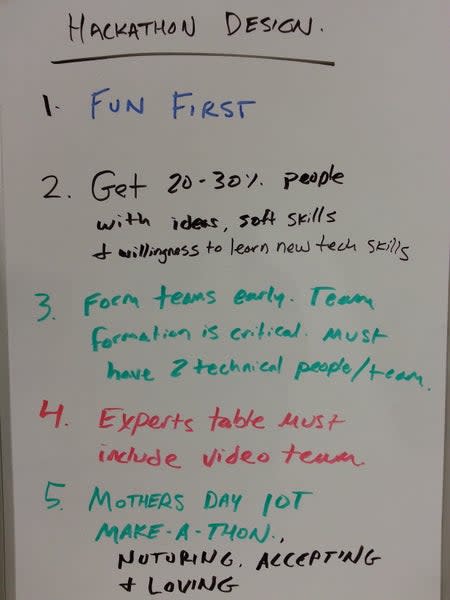 HACKATHON DESIGN.
1. FUN FIRST
2. Get 20-30% people
with ideas, soft skills
+ willingness to learn new tech skills
3. Form teams early. Team
formation is critical. MUST
have 2 technical people/team.
4. Experts table MUST
include video team.
5. MOTHERS DAY IOT
MAKE-A-THON.,
NUTURING, ACCEPTING
+ LOVING